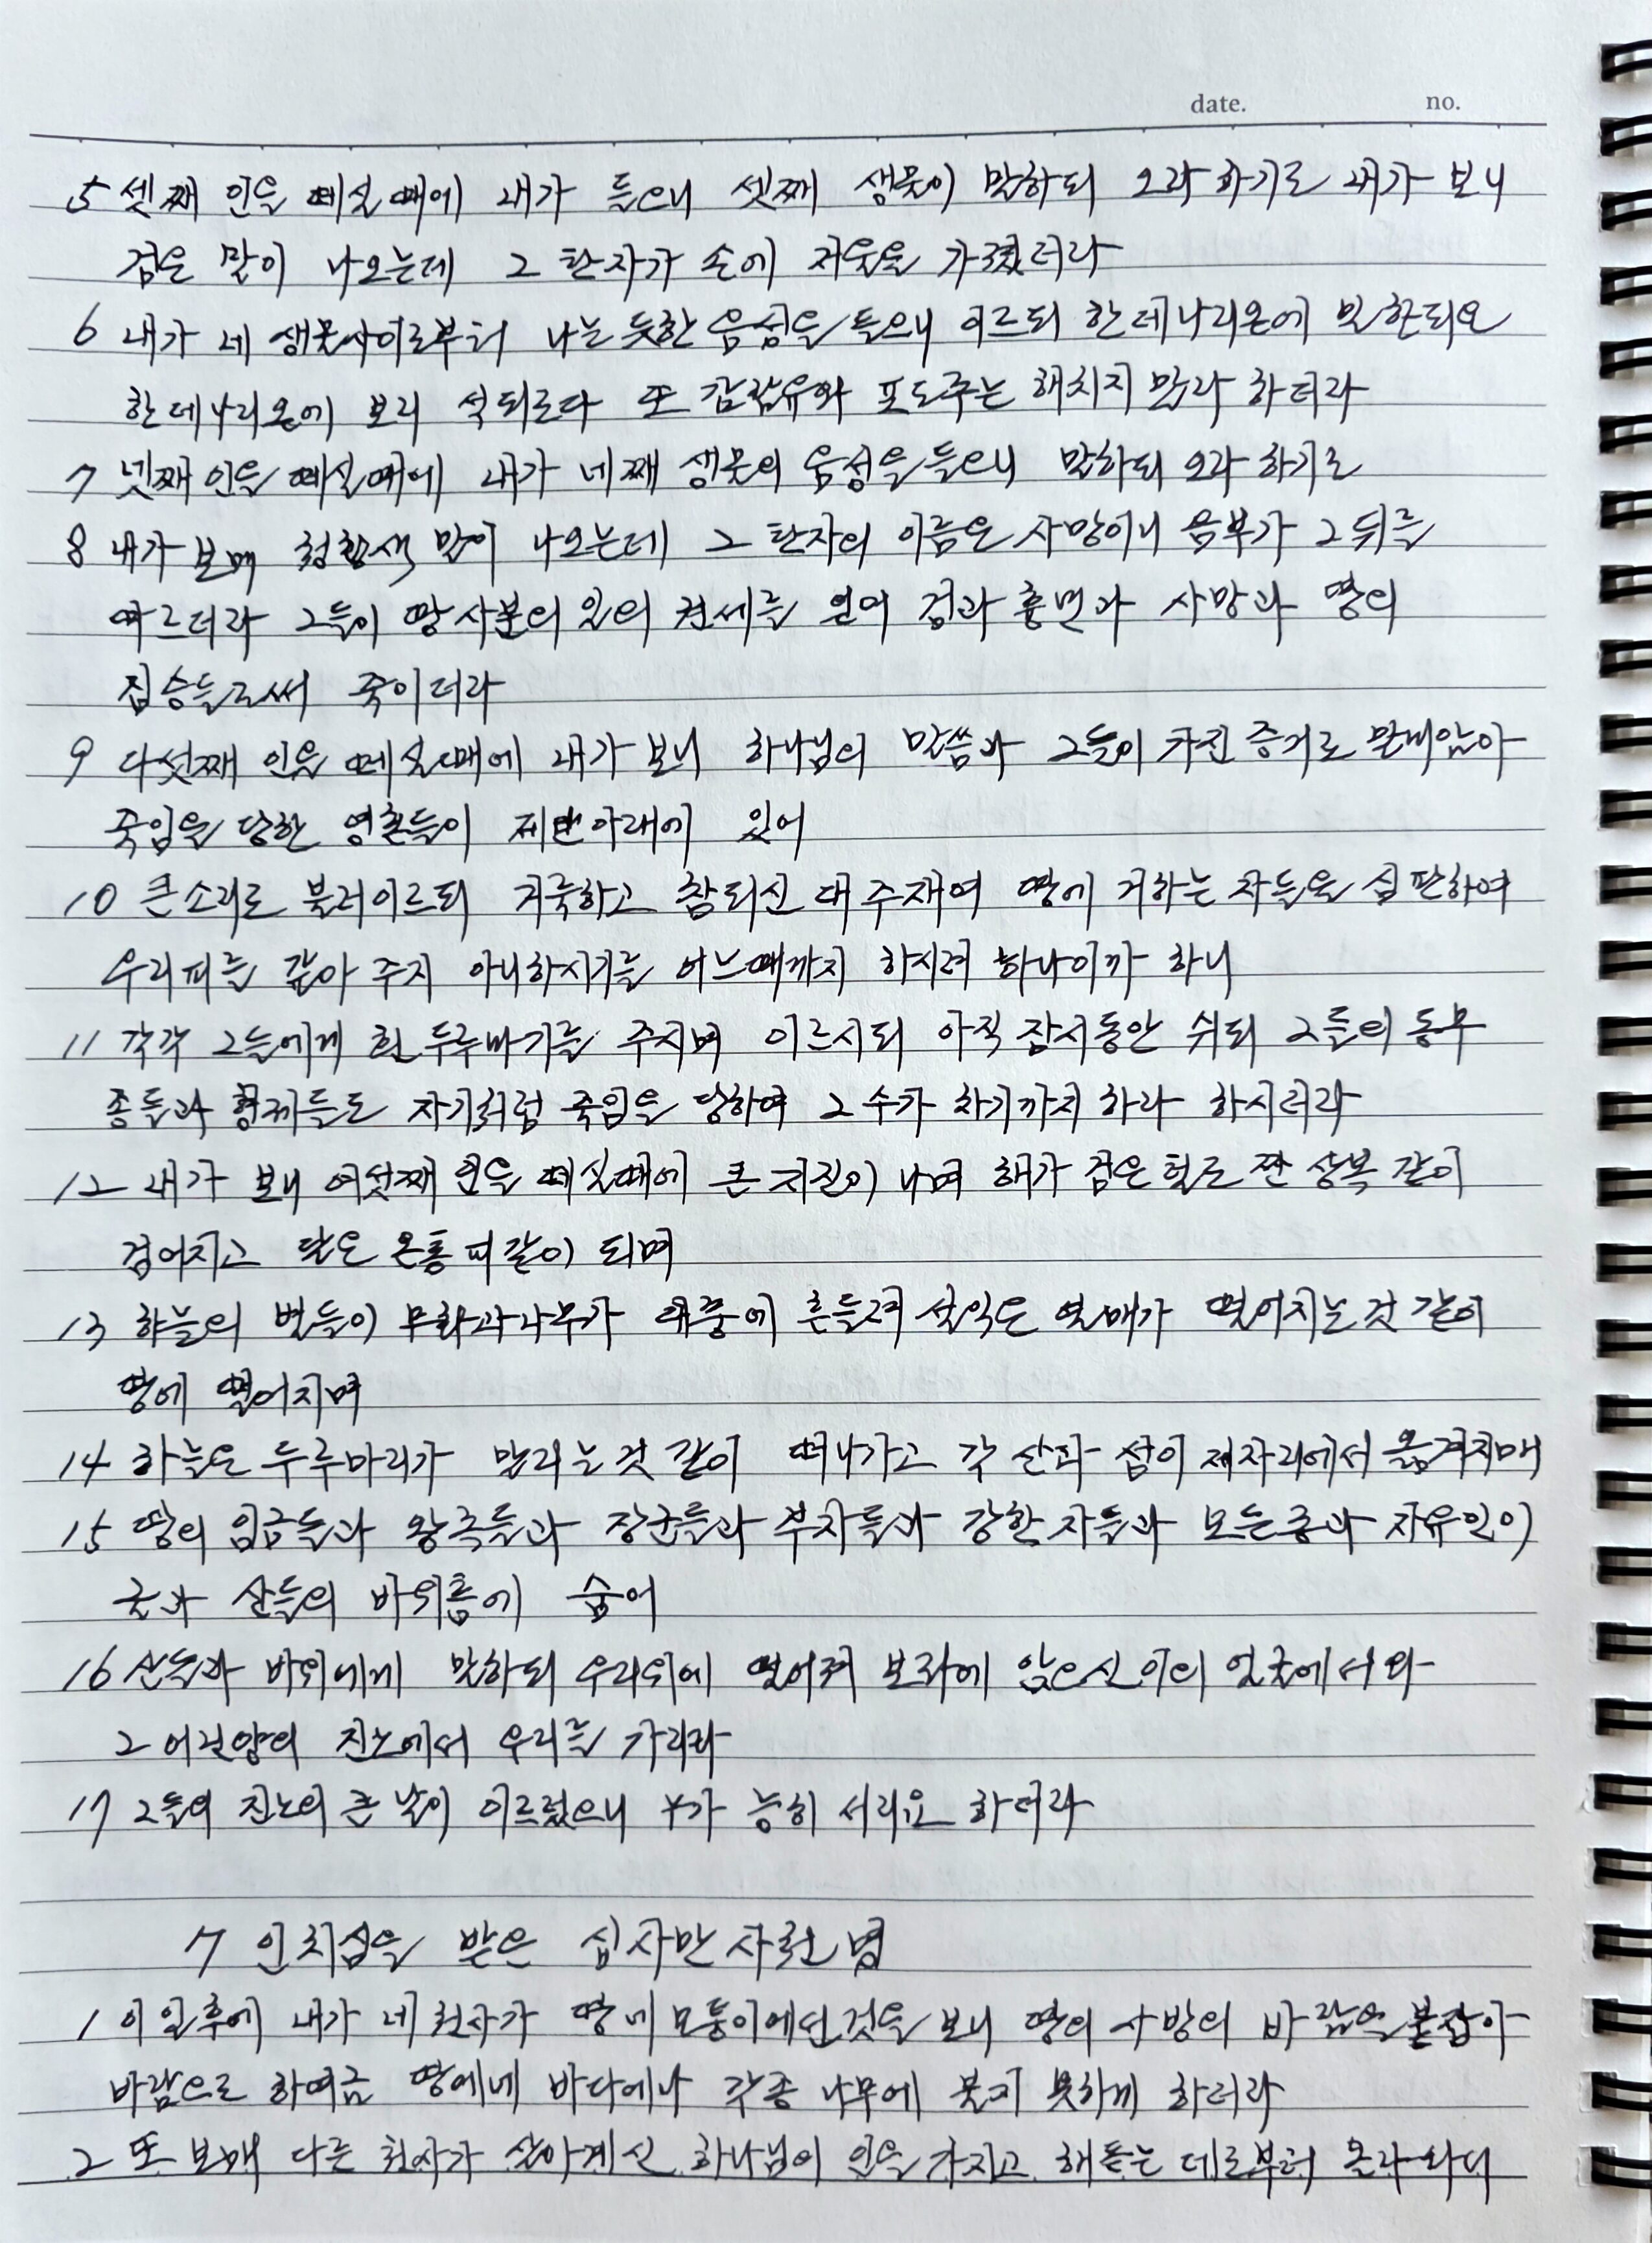 date. no.
5 셋째 인을 떼실때에 내가 들으니 셋째 생물이 말하되 오라하기로 내가 보니
검은 말이 나오는데 그 탄자가 손에 저울을 가졌더라
6 내가 네 생물사이로부터 나는 듯한 음성을 들으니 이르되 한데나리온에 밀 한되요
한데나리온에 보리 석되로다 또 감람유와 포도주는 해치지 말라 하더라
7 넷째 인을 떼실때에 내가 네째 생물의 음성을 들으니 말하되 오라 하기로
8 내가 보매 청황색 말이 나오는데 그 탄자의 이름은 사망이니 음부가 그 뒤를
따르더라 그들이 땅 사분의 일의 권세를 얻어 검과 흉년과 사망과 땅의
짐승들로써 죽이더라
9 다섯째 인을 떼실때에 내가 보니 하나님의 말씀과 그들이 가진 증거로 말미암아
죽임을 당한 영혼들이 제단아래에 있어
10 큰소리로 불러이르되 거룩하고 참되신 대주재여 땅에 거하는 자들을 심판하여
우리피를 갚아 주지 아니하시기를 어느때까지 하시려 하나이까 하니
11 각각 그들에게 흰 두루마기를 주시며 이르시되 아직 잠시동안 쉬되 그들의 동무
종들과 형제들도 자기처럼 죽임을 당하여 그 수가 차기까지 하라 하시더라
12 내가 보니 여섯째 인을 떼실때에 큰 지진이 나며 해가 검은 털로 짠 상복 같이
검어지고 달은 온통 피같이 되며
13 하늘의 별들이 무화과나무가 대풍에 흔들려 설익은 열매가 떨어지는것 같이
땅에 떨어지며
14 하늘은 두루마리가 말리는것 같이 떠나가고 각 산과 섬이 제자리에서 옮겨지매
15 땅의 임금들과 왕족들과 장군들과 부자들과 강한 자들과 모든종과 자유인이
굴과 산들의 바위틈에 숨어
16 산들과 바위에게 말하되 우리위에 떨어져 보좌에 앉으신 이의 얼굴에서와
그 어린양의 진노에서 우리를 가리라
17 그들의 진노의 큰 날이 이르렀으니 누가 능히 서리요 하더라
7 인치심을 받은 십사만 사천 명
1 이 일후에 내가 네 천사가 땅 네 모퉁이에선것을 보니 땅의 사방의 바람을 붙잡아
바람으로 하여금 땅에네 바다에나 각종 나무에 불지 못하게 하더라
2 또 보매 다른 천사가 살아계신 하나님의 인을 가지고 해돋는 데로부터 올라와서